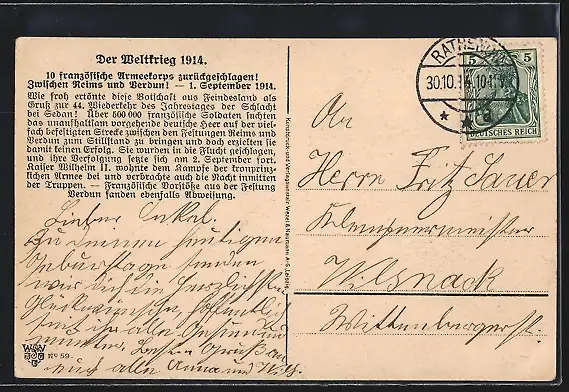 Der Weltkrieg 1914.
10 französische Armeekorps zurückgeschlagen!
Zwischen Reims und Verdun! — 1. September 1914.
Wie froh ertönte diese Botschaft aus Feindesland als
Gruß zur 44. Wiederkehr des Jahrestages der Schlacht
bei Sedan! Über 500 000 französische Soldaten suchten
das unaufhaltsam vorgehende deutsche Heer auf der viel-
fach befestigten Strecke zwischen den Festungen Reims und
Verdun zum Stillstand zu bringen und doch erzielten sie
damit keinen Erfolg. Sie wurden in die Flucht geschlagen,
und ihre Verfolgung setzte sich am 2. September fort.
Kaiser Wilhelm II. wohnte dem Kampfe der kronprinz-
lichen Armee bei und verbrachte auch die Nacht inmitten
der Truppen. — Französische Vorstöße aus der Festung
Verdun fanden ebenfalls Abweisung.
Lieber Onkel.
Zu Deinem heutigen
Geburtstage senden
wir dir die herzlichsten
Glückwünsche, hoffentlich
seid ihr alle gesund und
munter. Besten Gruß an
euch alle Anna und
W&N
No 59.
Kunstdruck- und Verlagsanstalt Wezel & Naumann A.-G. Leipzig.
RATHENOW
30.10.14.
5 5
DEUTSCHES REICH
An
Herrn Fritz Sauer
Klempnermeister
Wilsnack
Wittenbergerst.